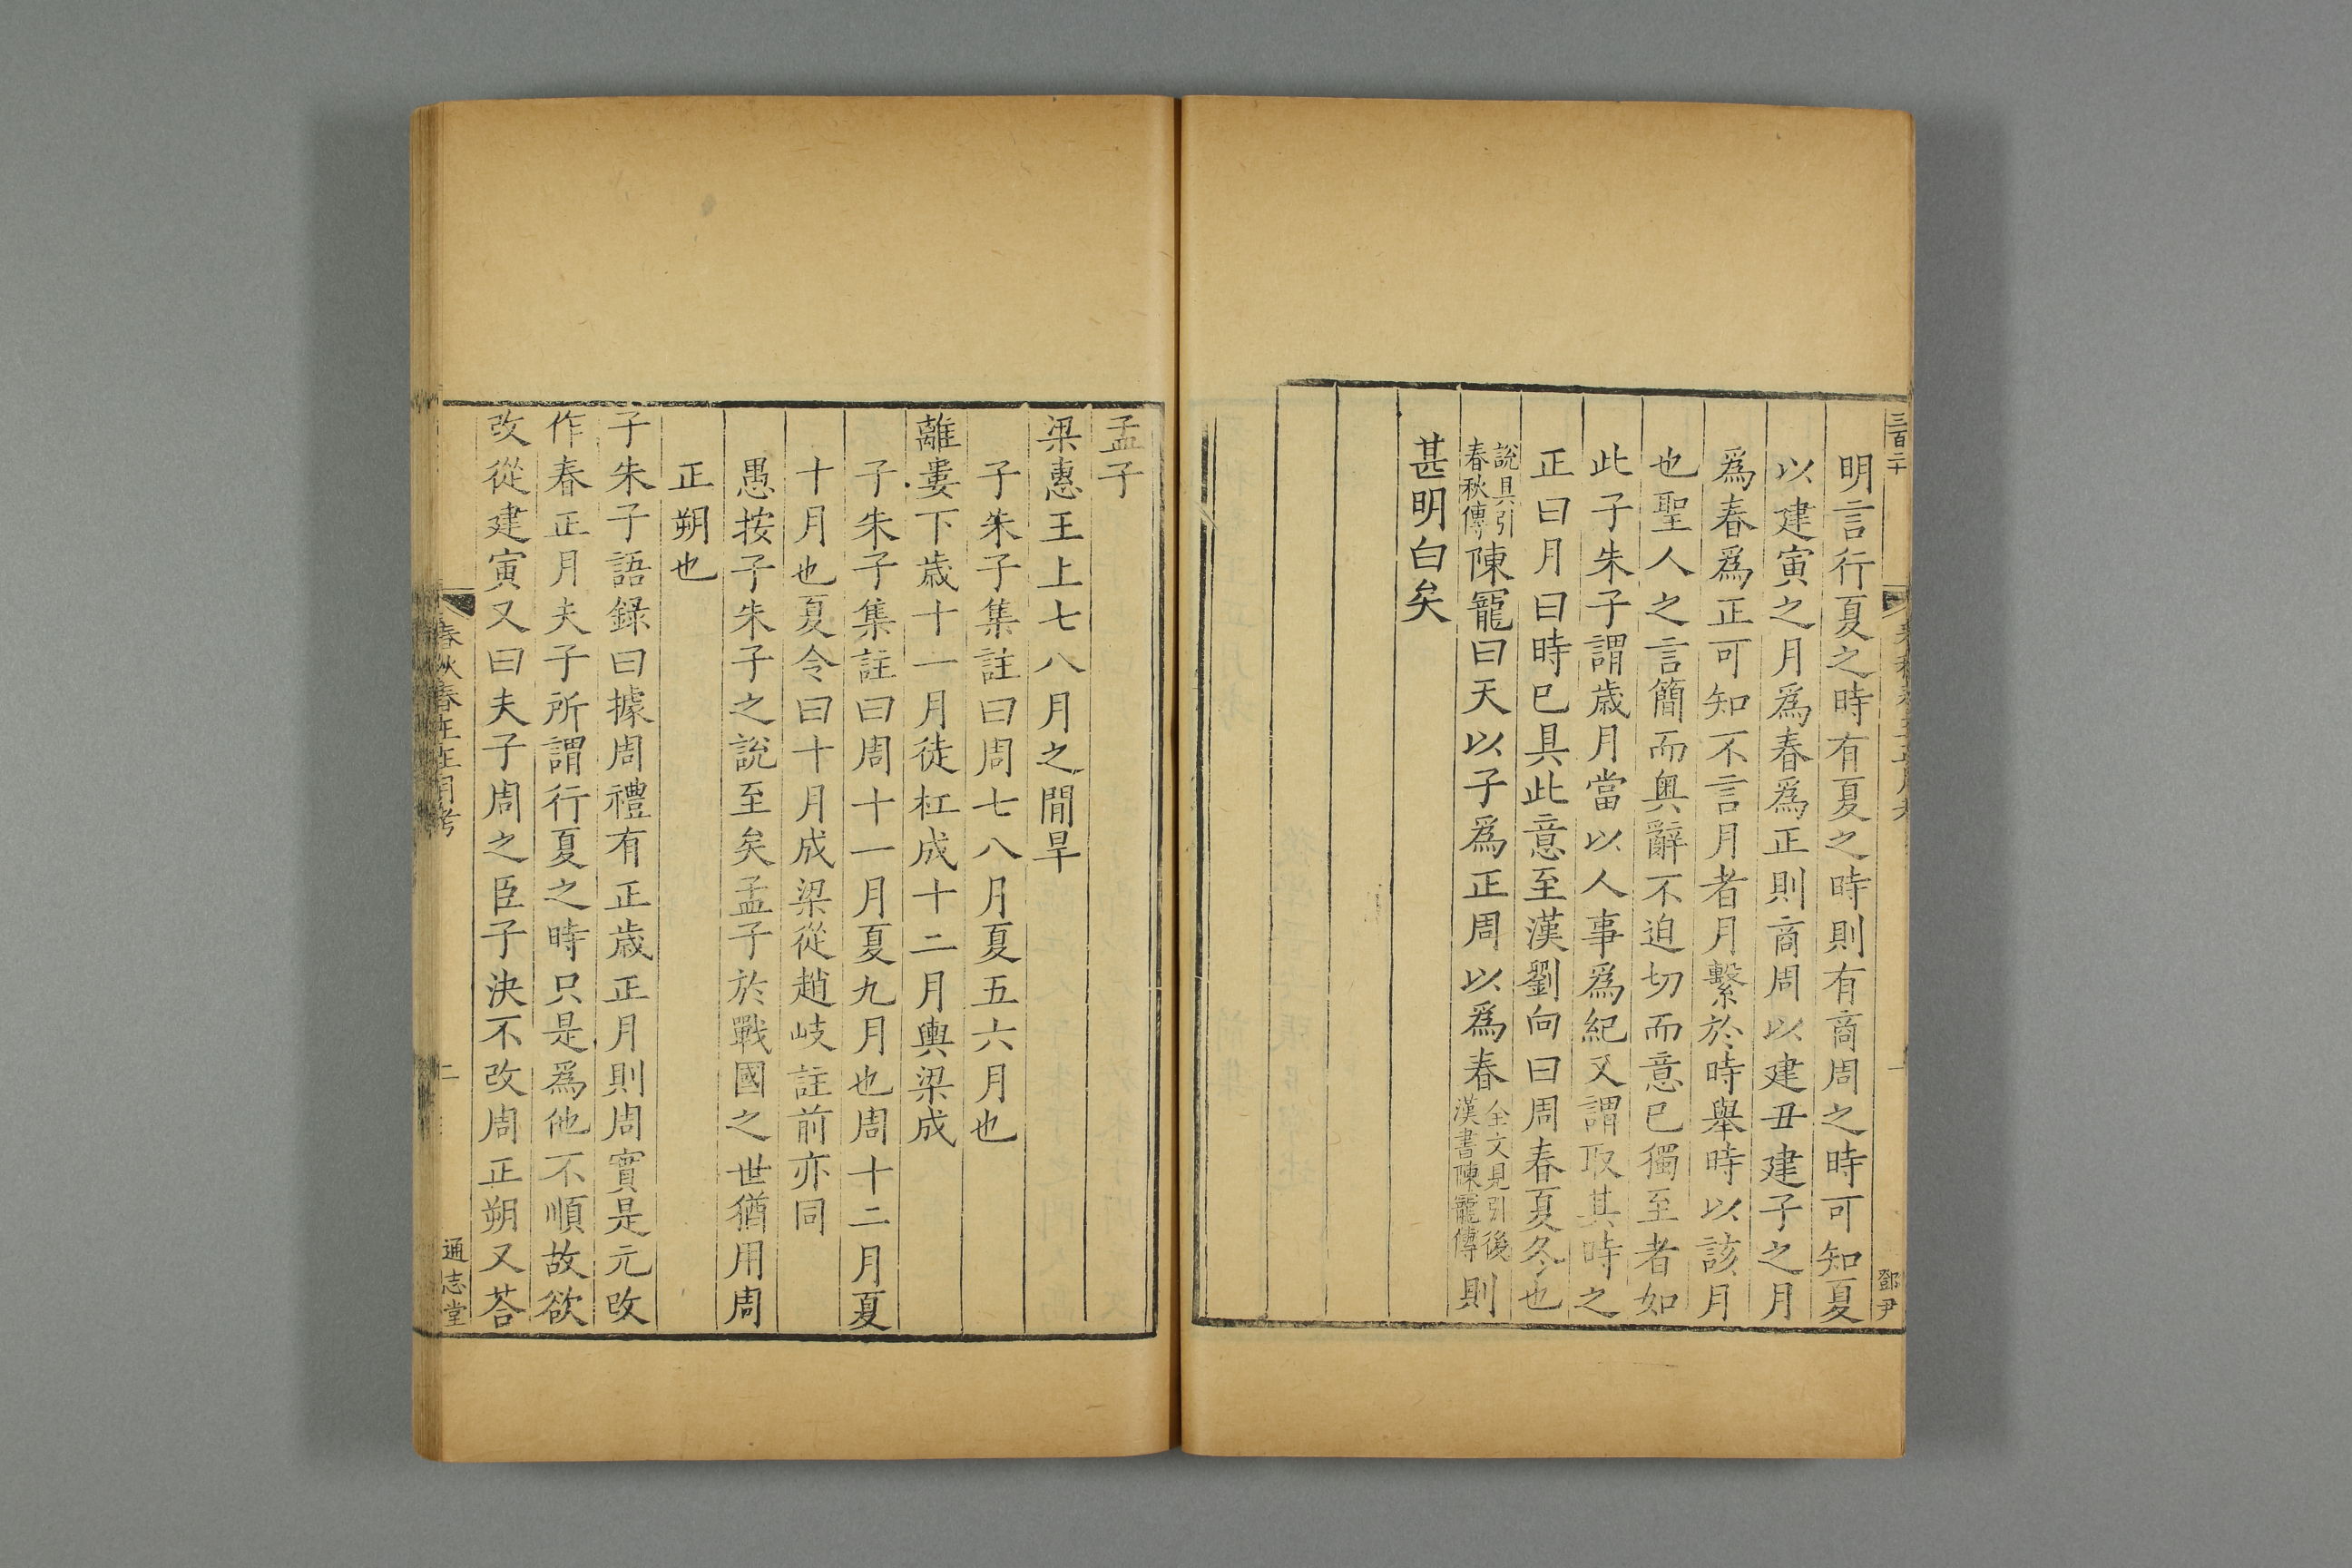 三百二十
鄧尹
明言行夏之時有夏之時則有商周之時可知夏
以建寅之月爲春爲正則商周以建丑建子之月
爲春爲正可知不言月者月繫於時時舉時以該月
也聖人之言簡而奧辭不迫切而意已獨至者如
此子朱子謂歲月當以人事爲紀又謂取其時之
正曰月曰時已具此意至漢劉向曰周春夏冬也
說具引
春秋傳
陳寵曰天以子爲正周以爲春
全文見引後
漢書陳寵傳
則
甚明白矣
孟子
梁惠王上七八月之閒旱
子朱子集註曰周七八月夏五六月也
離婁下歲十一月徒杠成十二月輿梁成
子朱子集註曰周十一月夏九月也周十二月夏
十月也夏令曰十月成梁從趙岐註前亦同
愚按子朱子之說至矣孟子於戰國之世猶用周
正朔也
子朱子語錄曰據周禮有正歲正月則周實是元改
作春正月夫子所謂行夏之時只是爲他不順故欲
改從建寅又曰夫子周之臣子決不改周正朔又荅
春秋春王正月考
二
通志堂